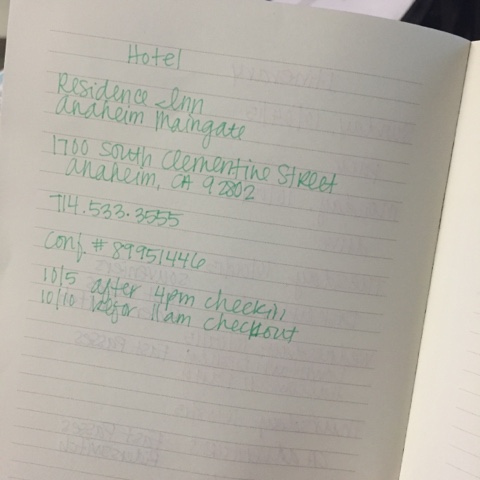 Hotel
Residence Inn
Anaheim Maingate
1700 South Clementine Street
Anaheim, CA 92802
714.533.3555
Conf. # 89951446
10/5 after 4pm checkin
10/10 befor 11am checkout